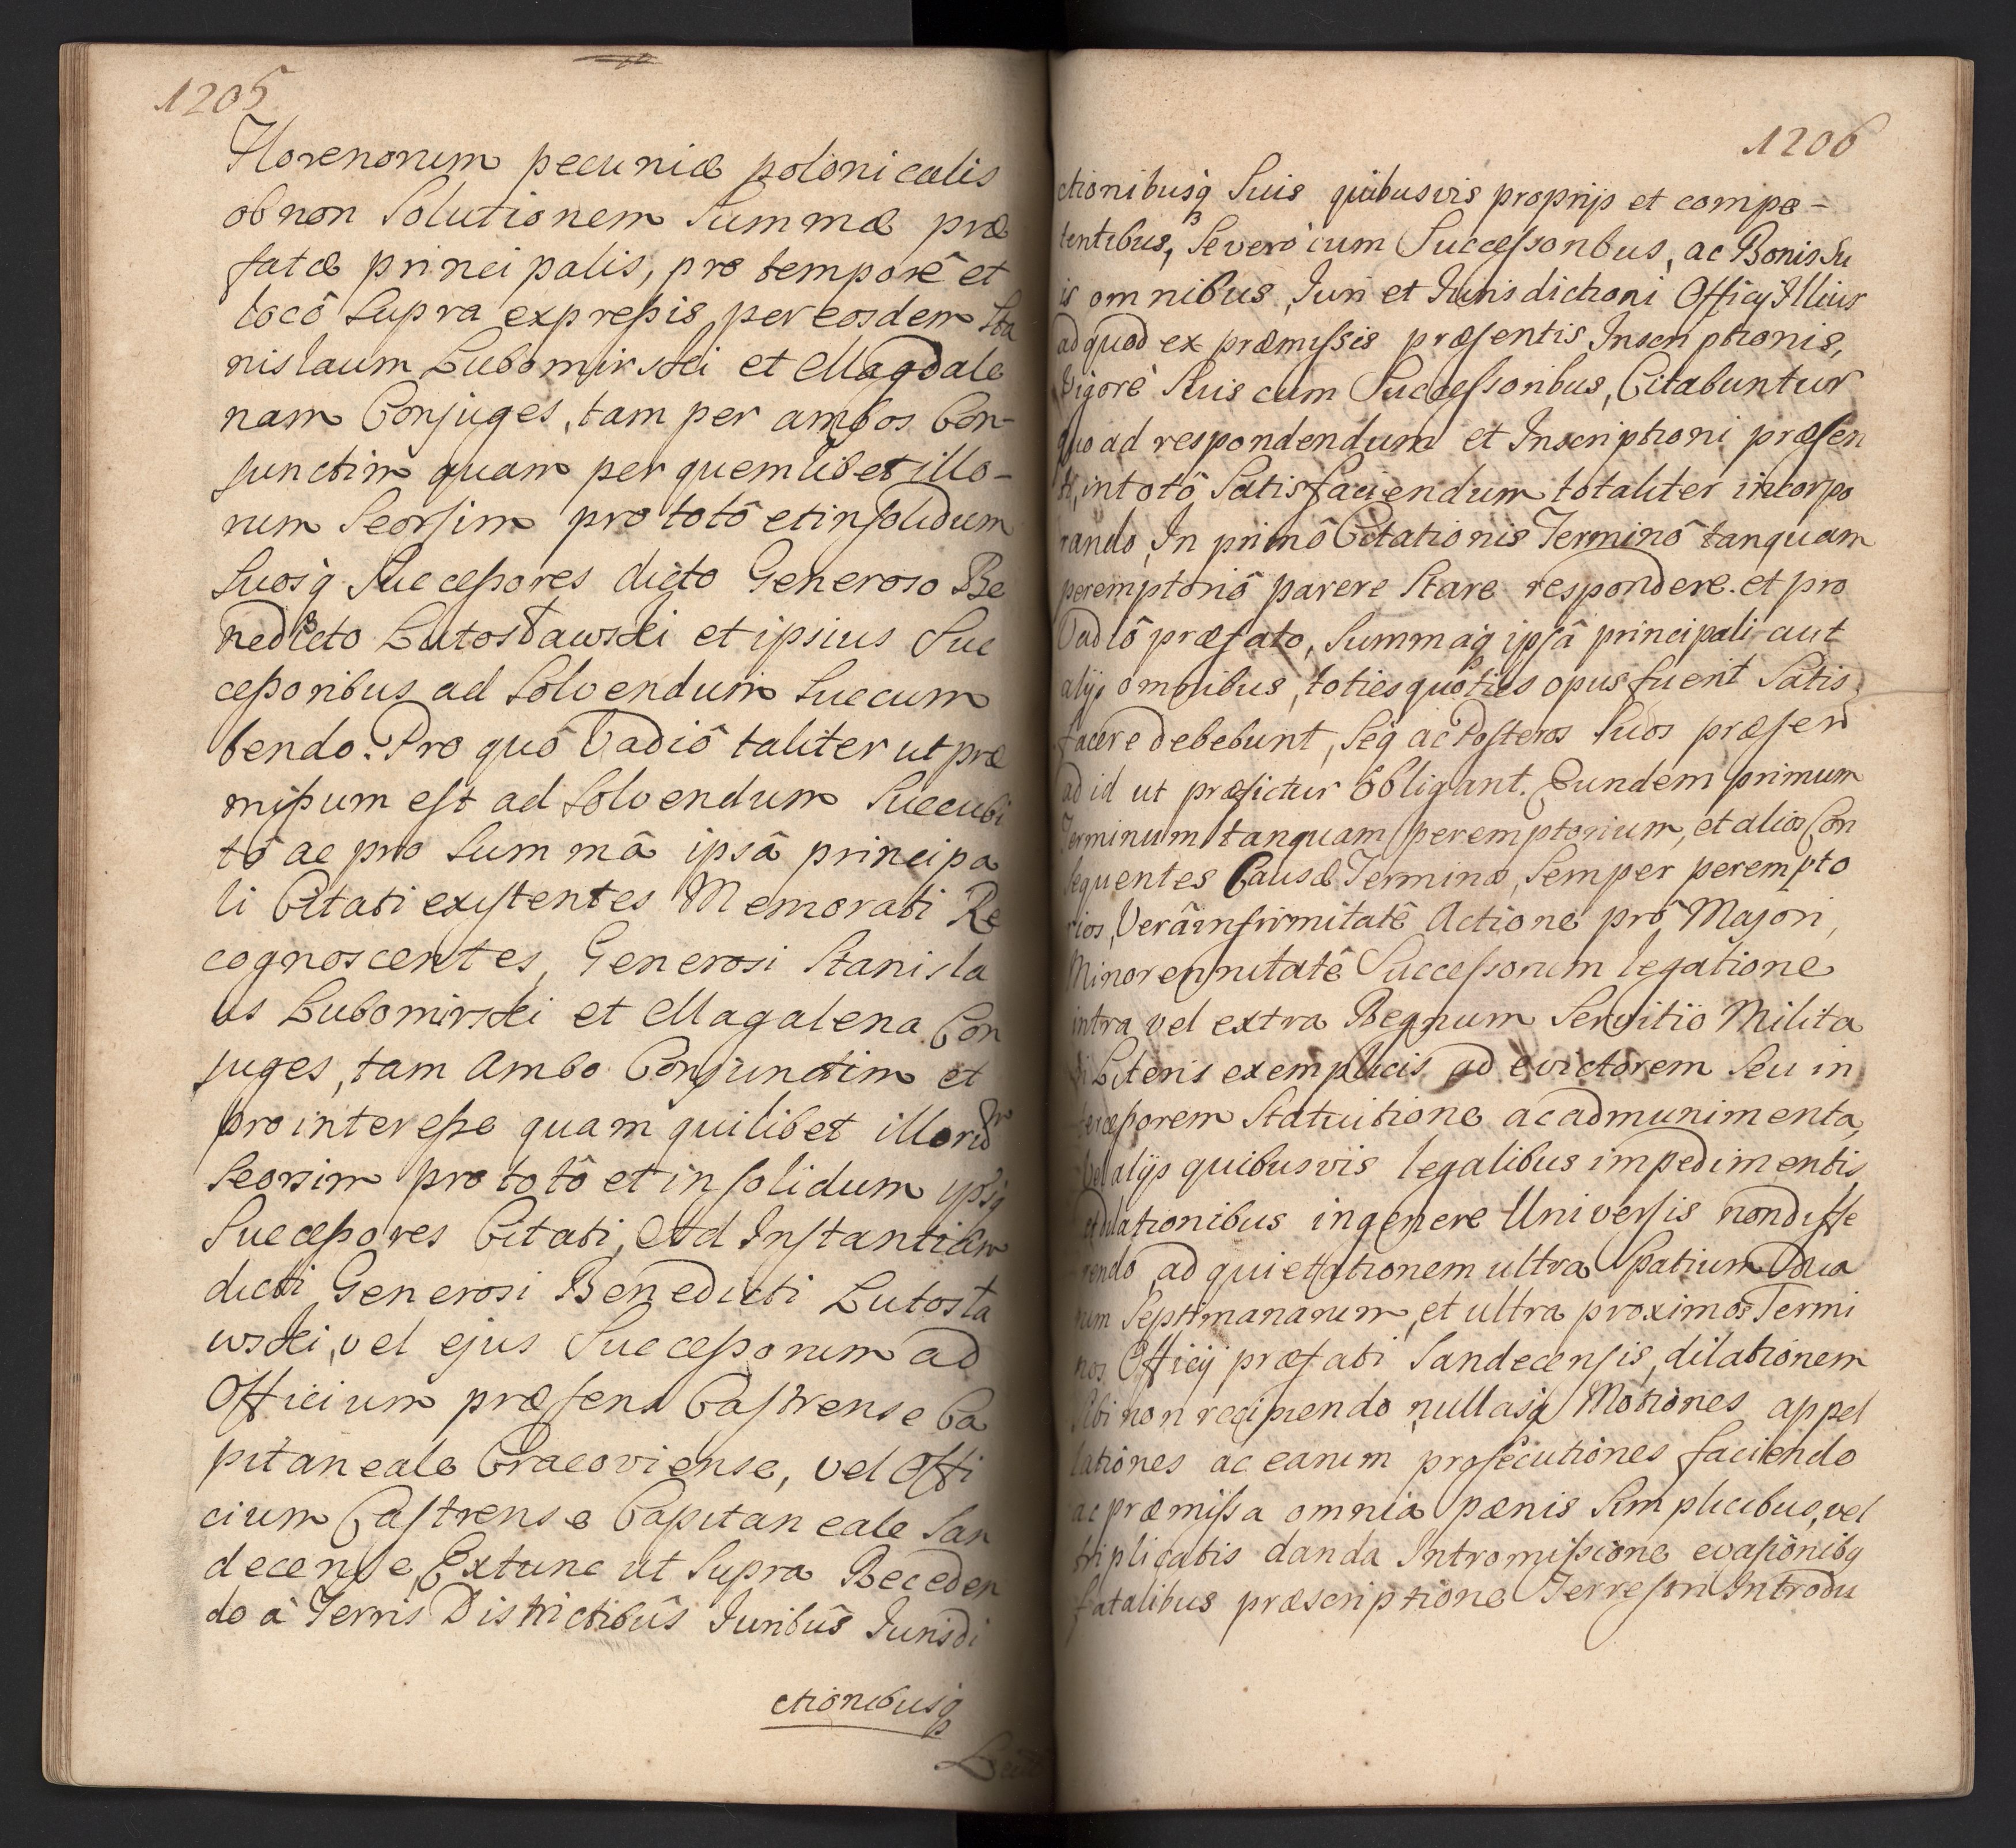 1205
Florenorum pecuniæ polonicalis
ob non Solutionem Summæ præ
fatæ principalis, pro temporê et
locô Supra expressis, per eosdem Sta
nislaum Lubomirski et Magdale
nam Conjuges, tam per ambos Con-
junctim quam per quemlibet illo-
rum Seorsim pro totô et in solidum
Suosq Successores dicto Generoso Be
nedicto Lutosławski et ipsius Suc
cessoribus ad Solvendum Succum
bendo. Pro quô Vadiô taliter ut præ
missum est ad Solvendum Succubi
tô ac pro Summâ ipsâ principa
li Citati existentes Memorati Re
cognoscentes, Generosi Stanisla
us Lubomirski et Magalena Con
juges, tam Ambo Conjunctim et
pro interesse quam quilibet illorum
Seorsim pro totô et in solidum ipsiq
Successores Citati, Ad Instantiam
dicti Generosi Benedicti Lutosła
wski, vel ejus Successorum ad
Officium præsens Castrense Ca
pitaneale Cracoviense, vel Offi
cium Castrense Capitaneale San
decense, Extunc ut Supra Receden
do à Terris Districtibûs Juribûs Jurisdi
ctionibusq
1206
ctionibusq Suis quibusvis proprijs et compe-
tentibus, Severò cum Successoribus, ac Bonis Su
is omnibus, Juri et Jurisdictioni Officij Illius
ad quod ex præmissis præsentis Inscriptionis,
Vigorê Suis cum Successoribus, Citabuntur
quo ad respondendum et Inscriptioni præsen
ti, in totô Satisfaciendum totaliter incorpo
rando, In primô Citationis Terminô tanquam
peremptoriô parere Stare respondere. et pro
Vadiô præfato, Summaq ipsâ principali aut
alijs omnibus, toties quoties opus fuerit Satis
facere debebunt, Seq ac Posteros Suos præsen
ad id ut præficitur Obligant. Eundem primum
Terminum tanquam peremptorium, et alios Con
sequentes Causæ Terminos, Semper perempto
rios, Verâ infirmitatê Actione prô Majori,
Minorennitatê Successorum legatione
intra vel extra Regnum Servitiô Milita
ri Literis exemplicis ad evictorem Seu in
tercessorem Statuitione ac ad munimenta,
Vel alijs quibusvis legalibus impedimentis
et dilationibus in genere Universis non diffe
rendo ad quietationem ultra Spatium Dua
rum Septimanarum, et ultra proximos Termi
nos Officij præfati Sandecensis, dilationem
Sibi non recipiendo, nullasq Motiones appel
lationes ac earum prosecutiones faciendo
ac præmissa omnia pænis Simplicibus, vel
triplicatis danda Intromissione evasionibq
fatalibus præscriptione Terrestri Introdu